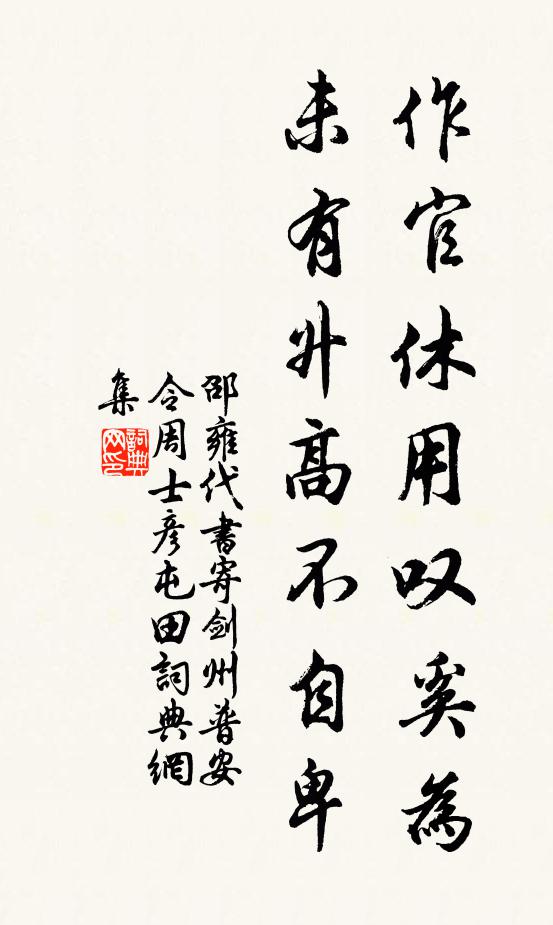 作官休用叹奚為
未有升高不自卑
邵雍代書寄剑州普安
令周士彦屯田詞典網
集
詞典
网印